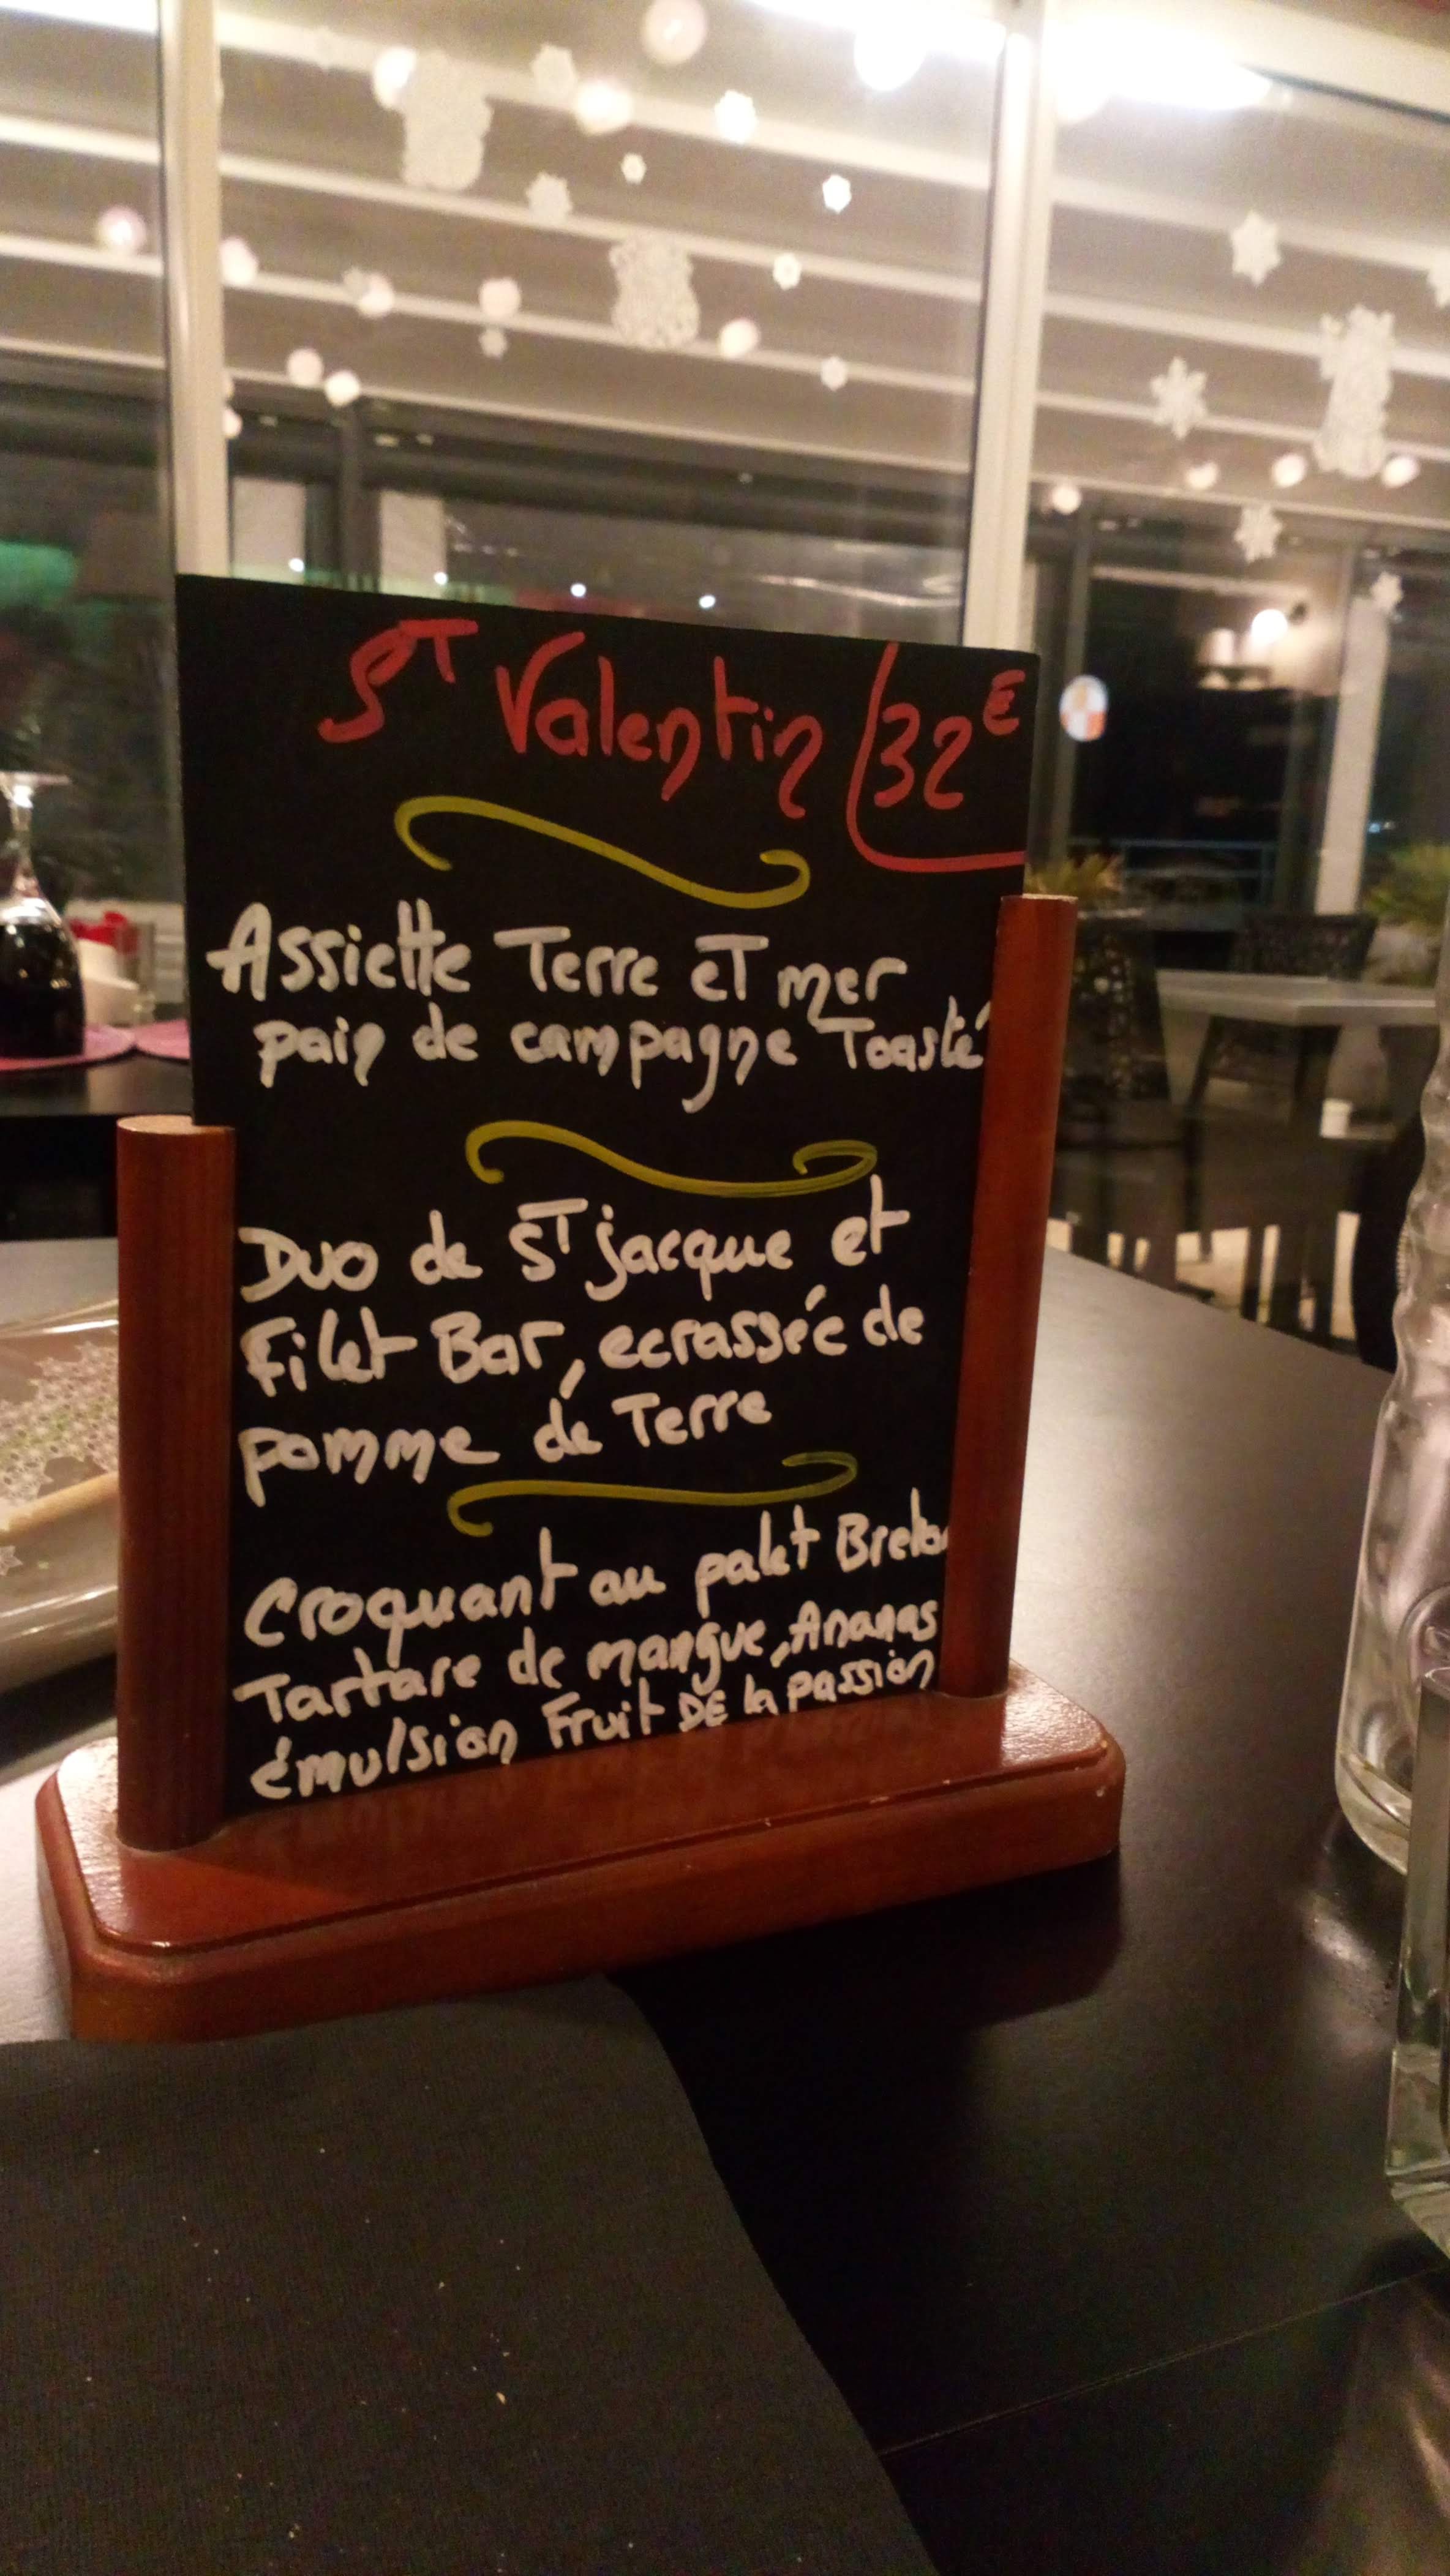 ST Valentin 32€
Assiette Terre et mer
pain de campagne Toasté
Duo de ST jacque et
Filet Bar, ecrassée de
pomme de Terre
Croquant au palet Breton
Tartare de mangue, Ananas
émulsion Fruit DE la passion